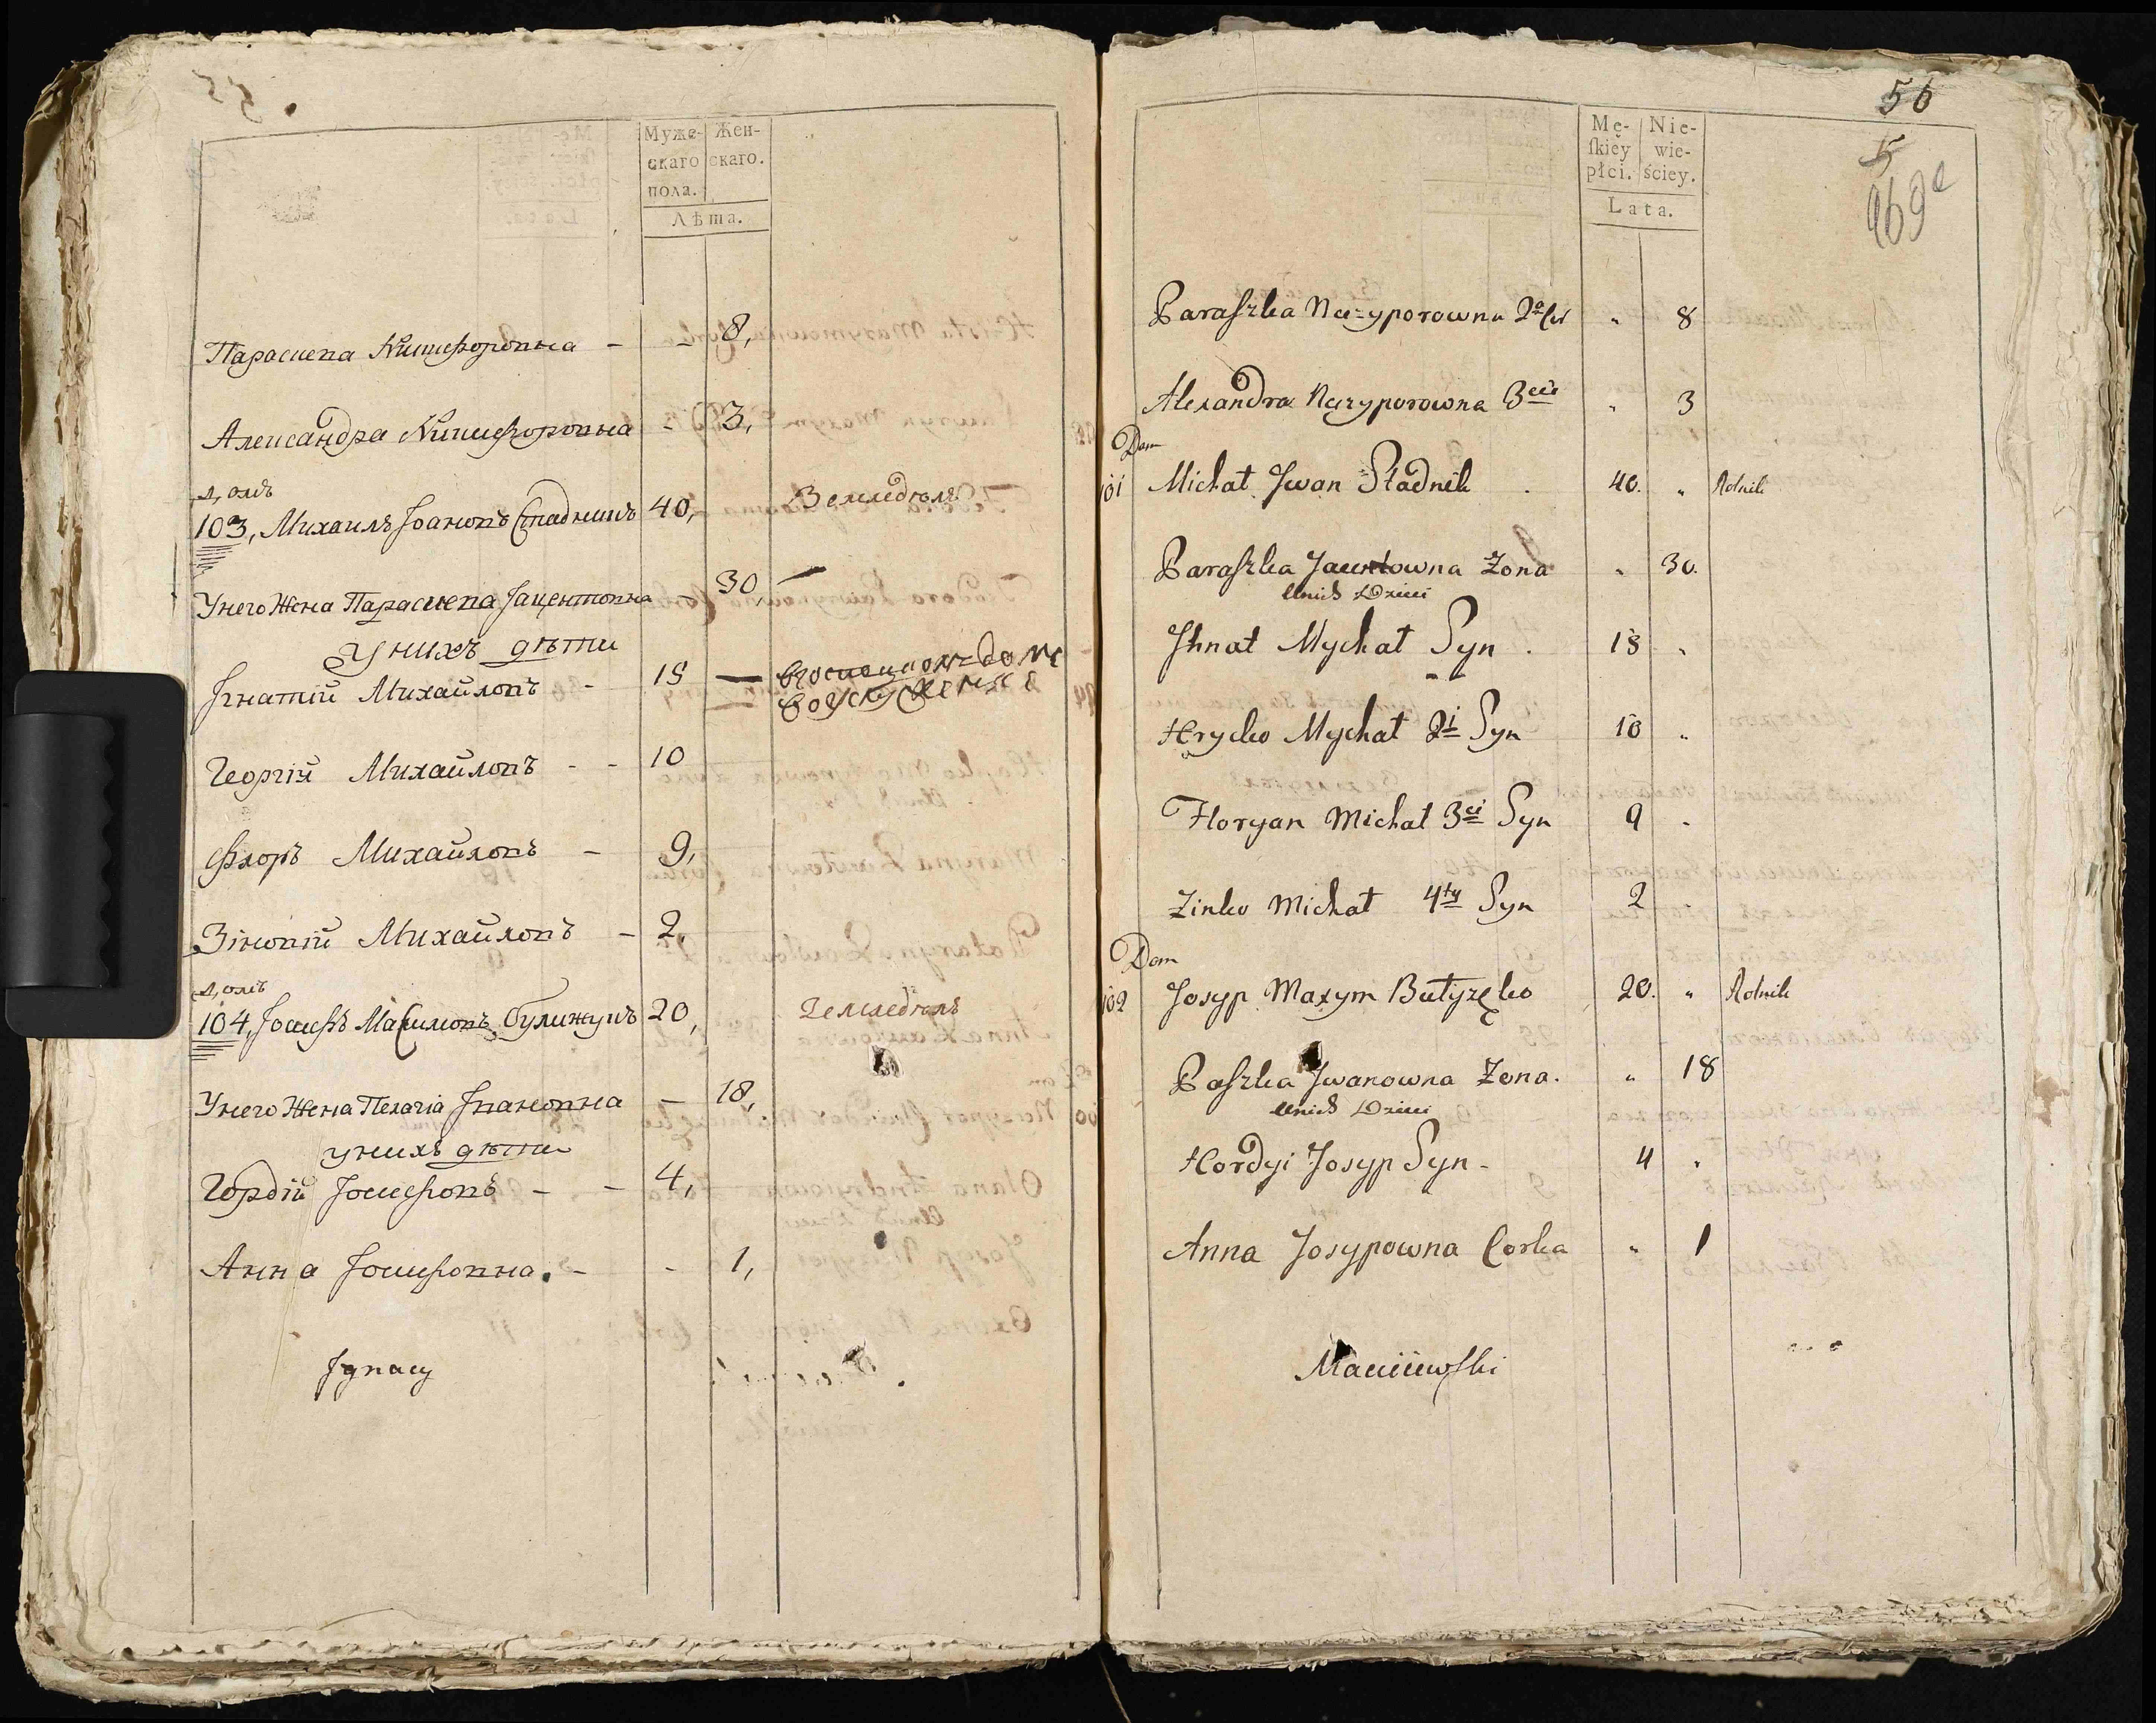 Муже-
скаго
пола.
Жен-
скаго.
Лѣта.
Параскева Никифоровна - - 8,
Александра Никифоровна - 3,
Домъ
103, Михаилъ Іоановъ Стадникъ 40, Земледѣлъ
У него Жена Параскева Іацентовна - 30,
У нихъ дѣти
Игнатій Михайловъ - 18
Георгій Михайловъ - - 10
Флоръ Михайловъ - 9,
Зѣновій Михайловъ - 2,
Домъ
104, Іосифъ Максимовъ 20, Земледѣлъ
У него Жена Пелагіа Ивановна - 18,
у нихъ дѣти
Гордій Іосифовъ - - 4,
Анна Іосифовна. - - 1,
Ignacy
56
5
Mę-
ſkiey
płci.
Nie-
wie-
ściey.
Lata.
Paraſzka Neczyporowna 2a Cor " 8
Alexandra Neczyporowna 3cia " 3
Dom
101 Michał Jwan Stadnik . 40. " Rolnik
Paraſzka Jacentowna Żona " 30.
Unich Dzieci
Jhnat Mychał Syn . 18 "
Hryćko Mychał 2i Syn 10 "
Floryan Michał 3ci Syn 9 "
Zinko Michał 4ty Syn 2 "
Dom
102 Josyp Maxym Bułyżęko 20. " Rolnik
Paſzka Jwanowna Żona. " 18
Unich Dzieci
Hordyi Josyp Syn - 4 "
Anna Josypowna Corka " 1
Maciiewſki